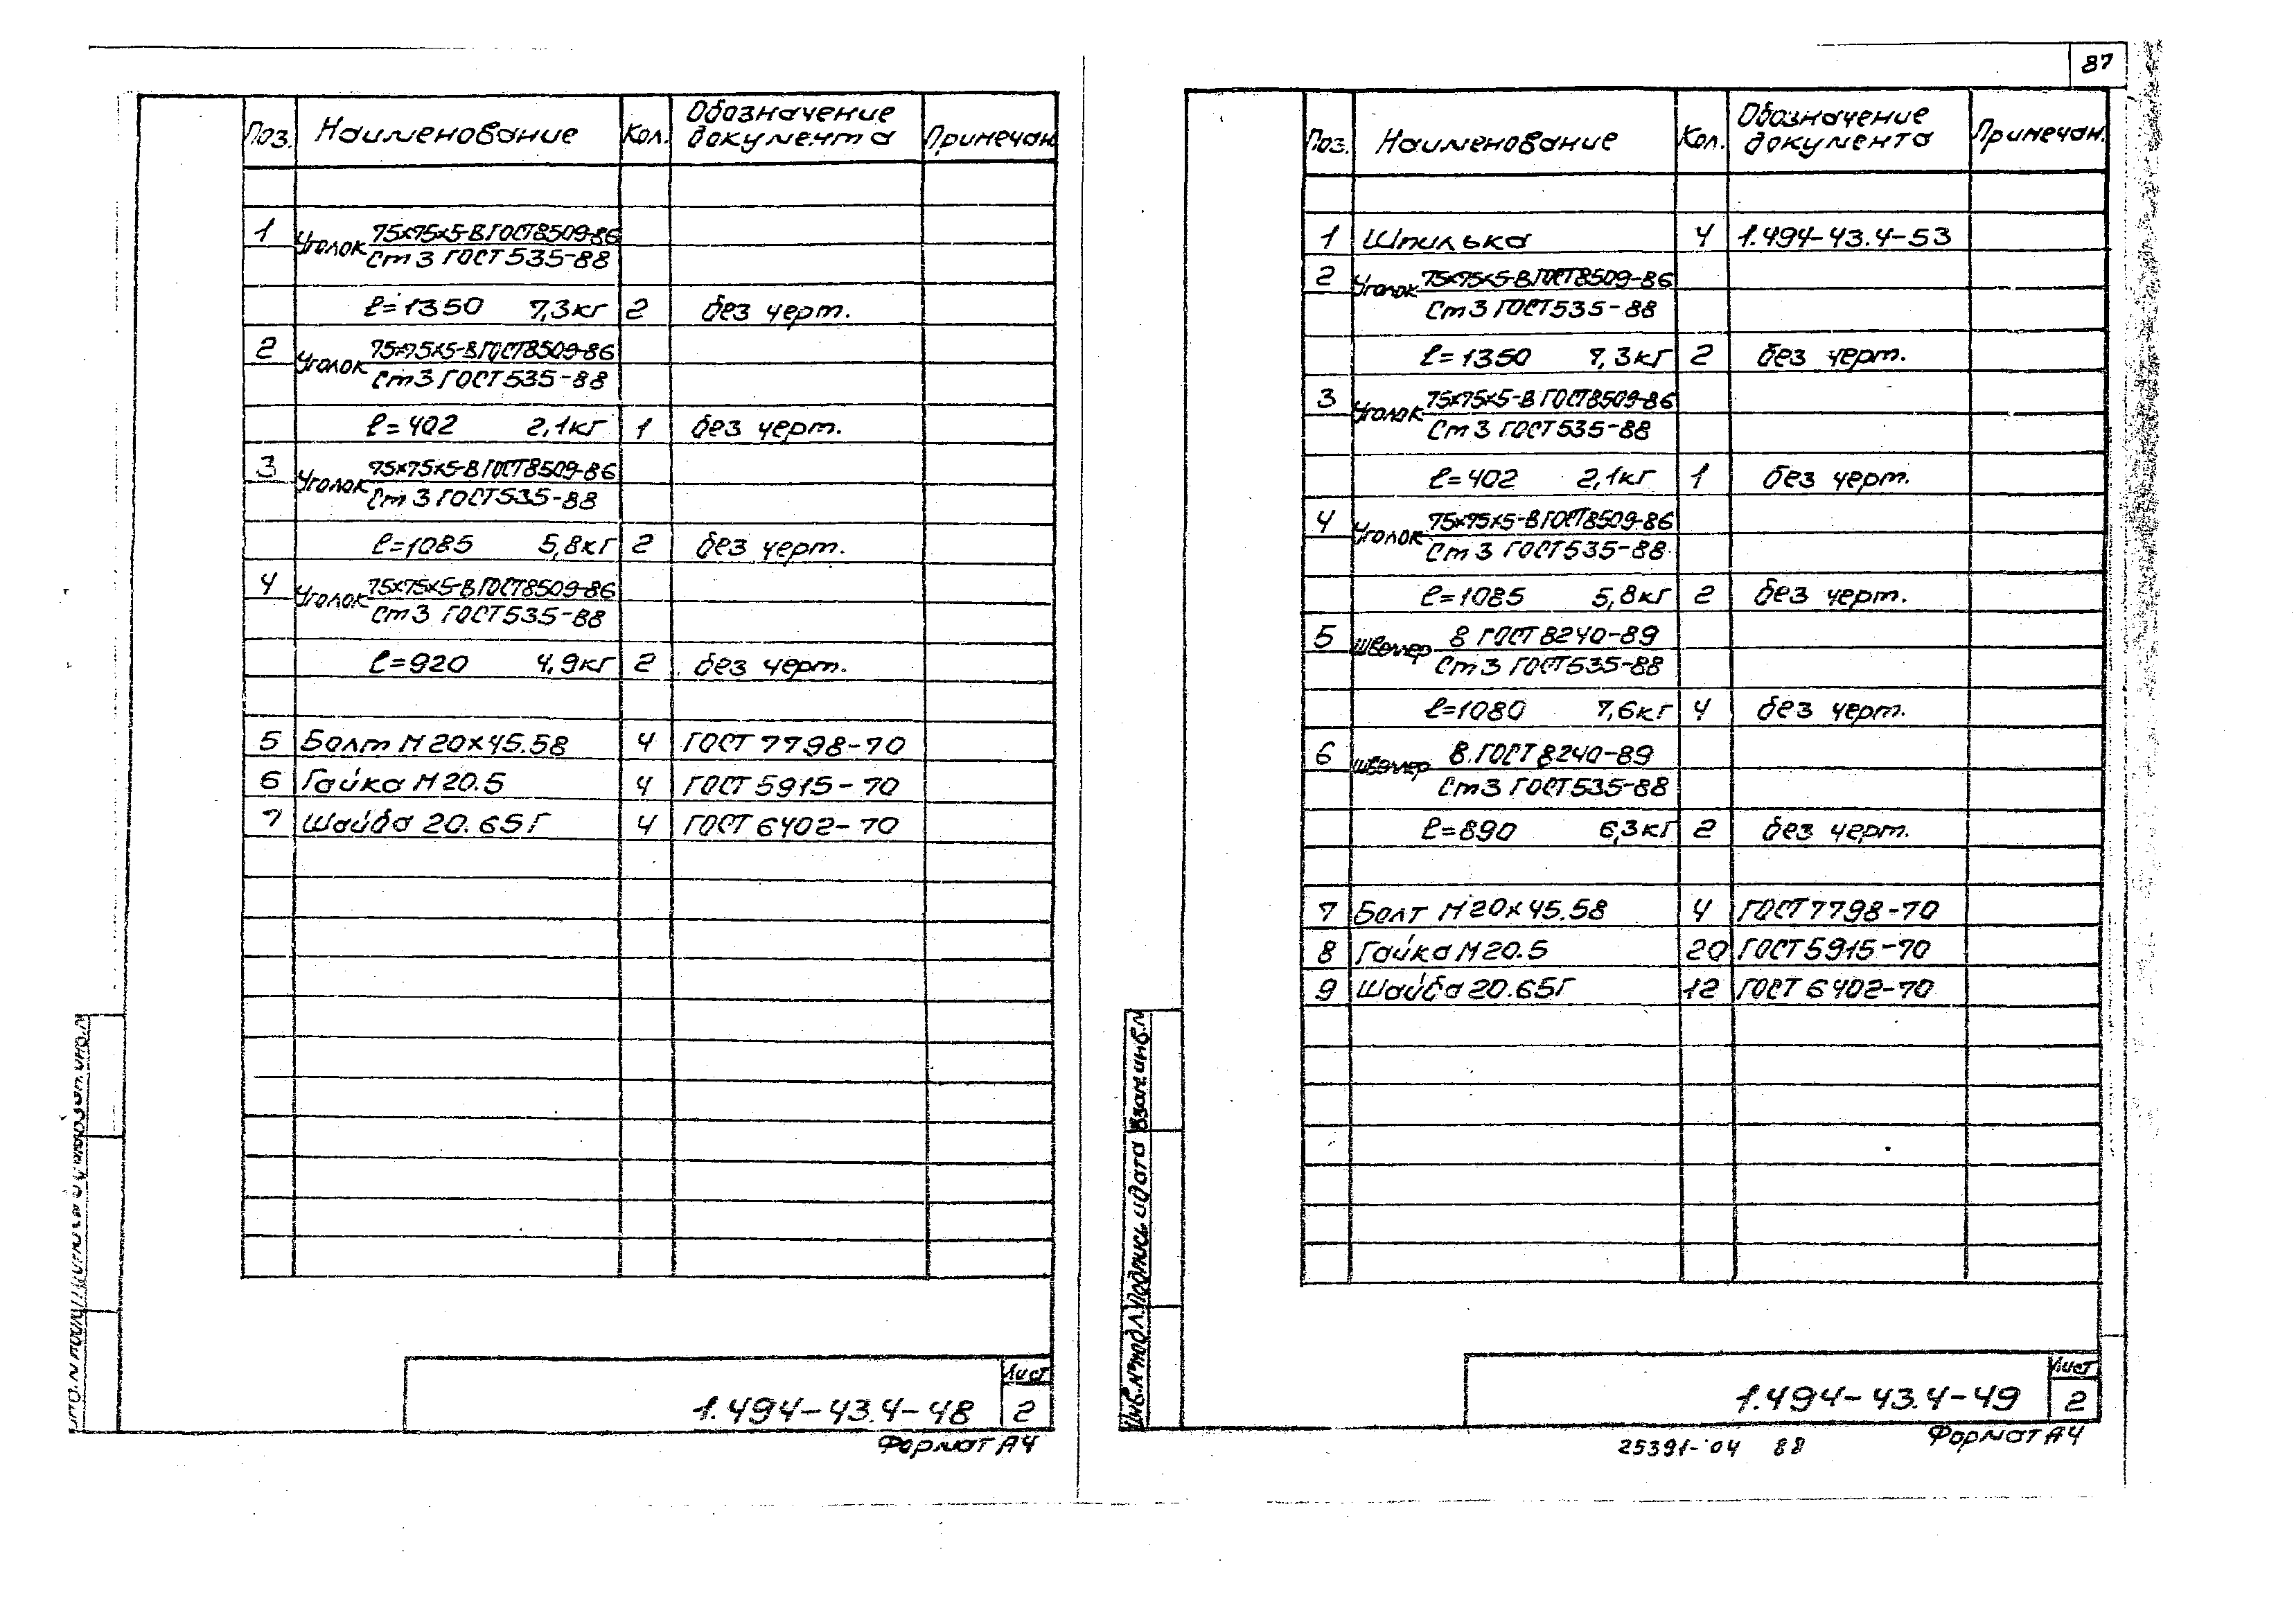 87
Поз. Наименование Кол. Обозначение документа Примечан.
1 Уголок 75х75х5-В ГОСТ 8509-86
Ст 3 ГОСТ 535-88
ℓ=1350 7,3кг 2 без черт.
2 Уголок 75х75х5-В ГОСТ 8509-86
Ст 3 ГОСТ 535-88
ℓ=402 2,1кг 1 без черт.
3 Уголок 75х75х5-В ГОСТ 8509-86
Ст 3 ГОСТ 535-88
ℓ=1085 5,8кг 2 без черт.
4 Уголок 75х75х5-В ГОСТ 8509-86
Ст 3 ГОСТ 535-88
ℓ=920 4,9кг 2 без черт.
5 Болт М20х45.58 4 ГОСТ 7798-70
6 Гайка М20.5 4 ГОСТ 5915-70
7 Шайба 20.65Г 4 ГОСТ 6402-70
1.494-43.4-48
Лист
2
Формат А4
Поз. Наименование Кол. Обозначение документа Примечан.
1 Шпилька 4 1.494-43.4-53
2 Уголок 75х75х5-В ГОСТ 8509-86
Ст 3 ГОСТ 535-88
ℓ=1350 7,3кг 2 без черт.
3 Уголок 75х75х5-В ГОСТ 8509-86
Ст 3 ГОСТ 535-88
ℓ=402 2,1кг 1 без черт.
4 Уголок 75х75х5-В ГОСТ 8509-86
Ст 3 ГОСТ 535-88
ℓ=1085 5,8кг 2 без черт.
5 Швеллер 8 ГОСТ 8240-89
Ст 3 ГОСТ 535-88
ℓ=1080 7,6кг 4 без черт.
6 Швеллер 8 ГОСТ 8240-89
Ст 3 ГОСТ 535-88
ℓ=890 6,3кг 2 без черт.
7 Болт М20х45.58 4 ГОСТ 7798-70
8 Гайка М20.5 20 ГОСТ 5915-70
9 Шайба 20.65Г 12 ГОСТ 6402-70
Инв.№подл. Подпись и дата Взам.инв.№
1.494-43.4-49
Лист
2
25391-04 88
Формат А4